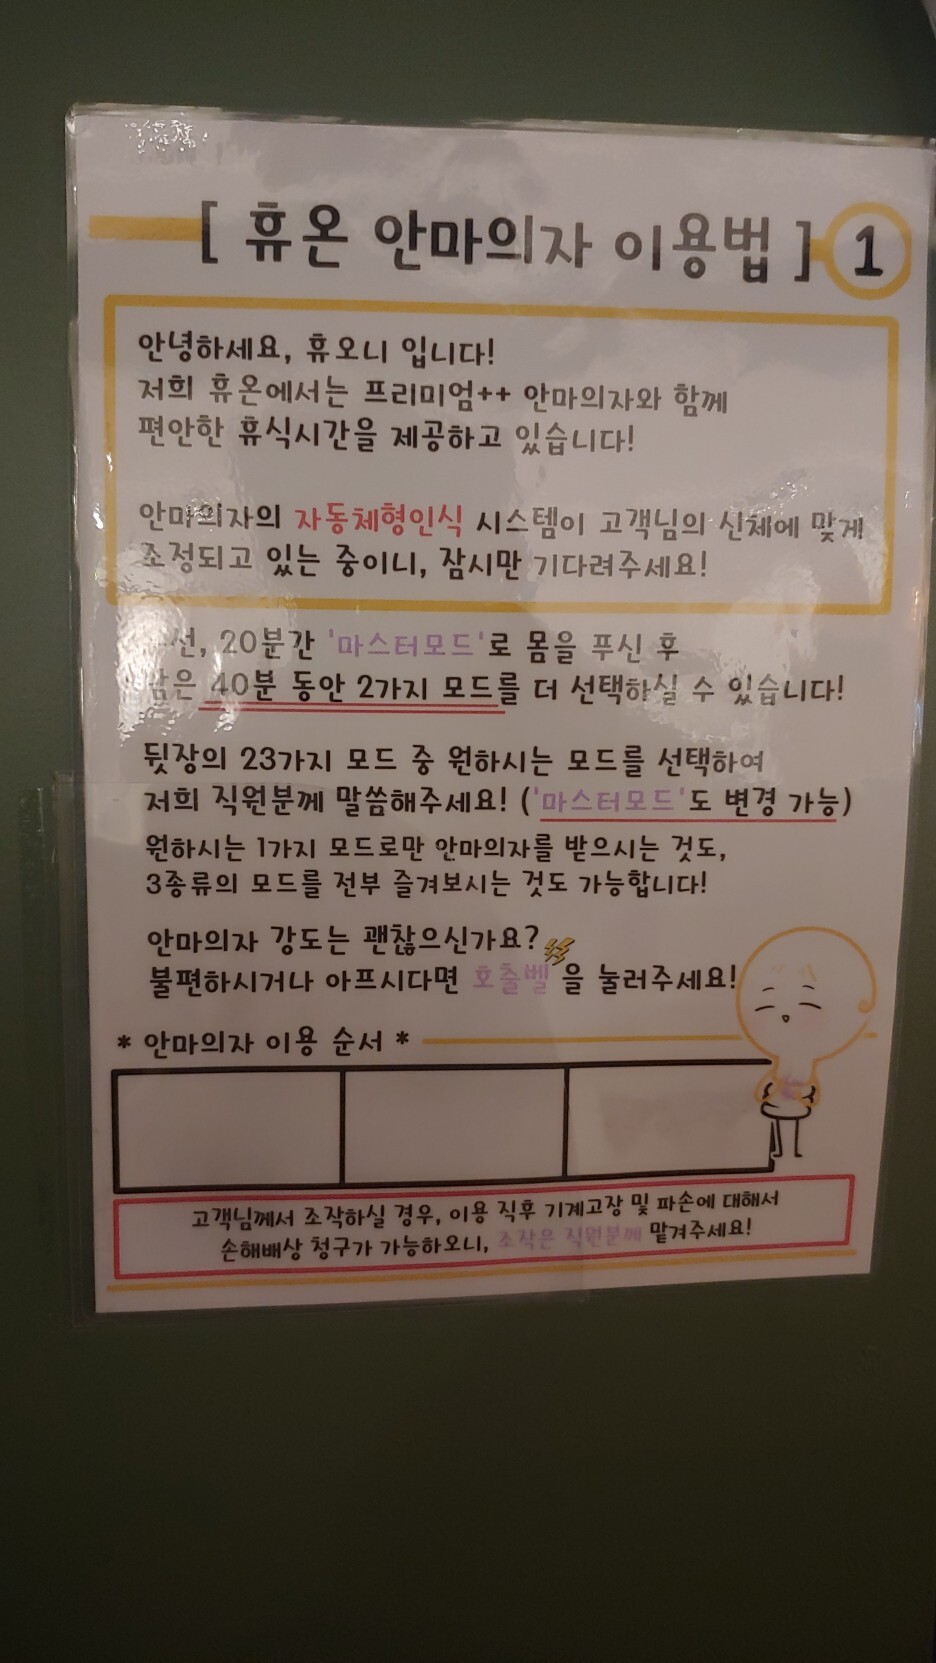 [ 휴온 안마의자 이용법 ] 1
안녕하세요, 휴오니 입니다!
저희 휴온에서는 프리미엄++ 안마의자와 함께
편안한 휴식시간을 제공하고 있습니다!
안마의자의 자동체형인식 시스템이 고객님의 신체에 맞게
조정되고 있는 중이니, 잠시만 기다려주세요!
20분간 '마스터모드'로 몸을 푸신 후
40분 동안 2가지 모드를 더 선택하실 수 있습니다!
뒷장의 23가지 모드 중 원하시는 모드를 선택하여
저희 직원분께 말씀해주세요! ('마스터모드'도 변경 가능)
원하시는 1가지 모드로만 안마의자를 받으시는 것도,
3종류의 모드를 전부 즐겨보시는 것도 가능합니다!
안마의자 강도는 괜찮으신가요?
불편하시거나 아프시다면 호출벨 을 눌러주세요!
* 안마의자 이용 순서 *
고객님께서 조작하실 경우, 이용 직후 기계고장 및 파손에 대해서
손해배상 청구가 가능하오니, 조작은 직원분께 맡겨주세요!